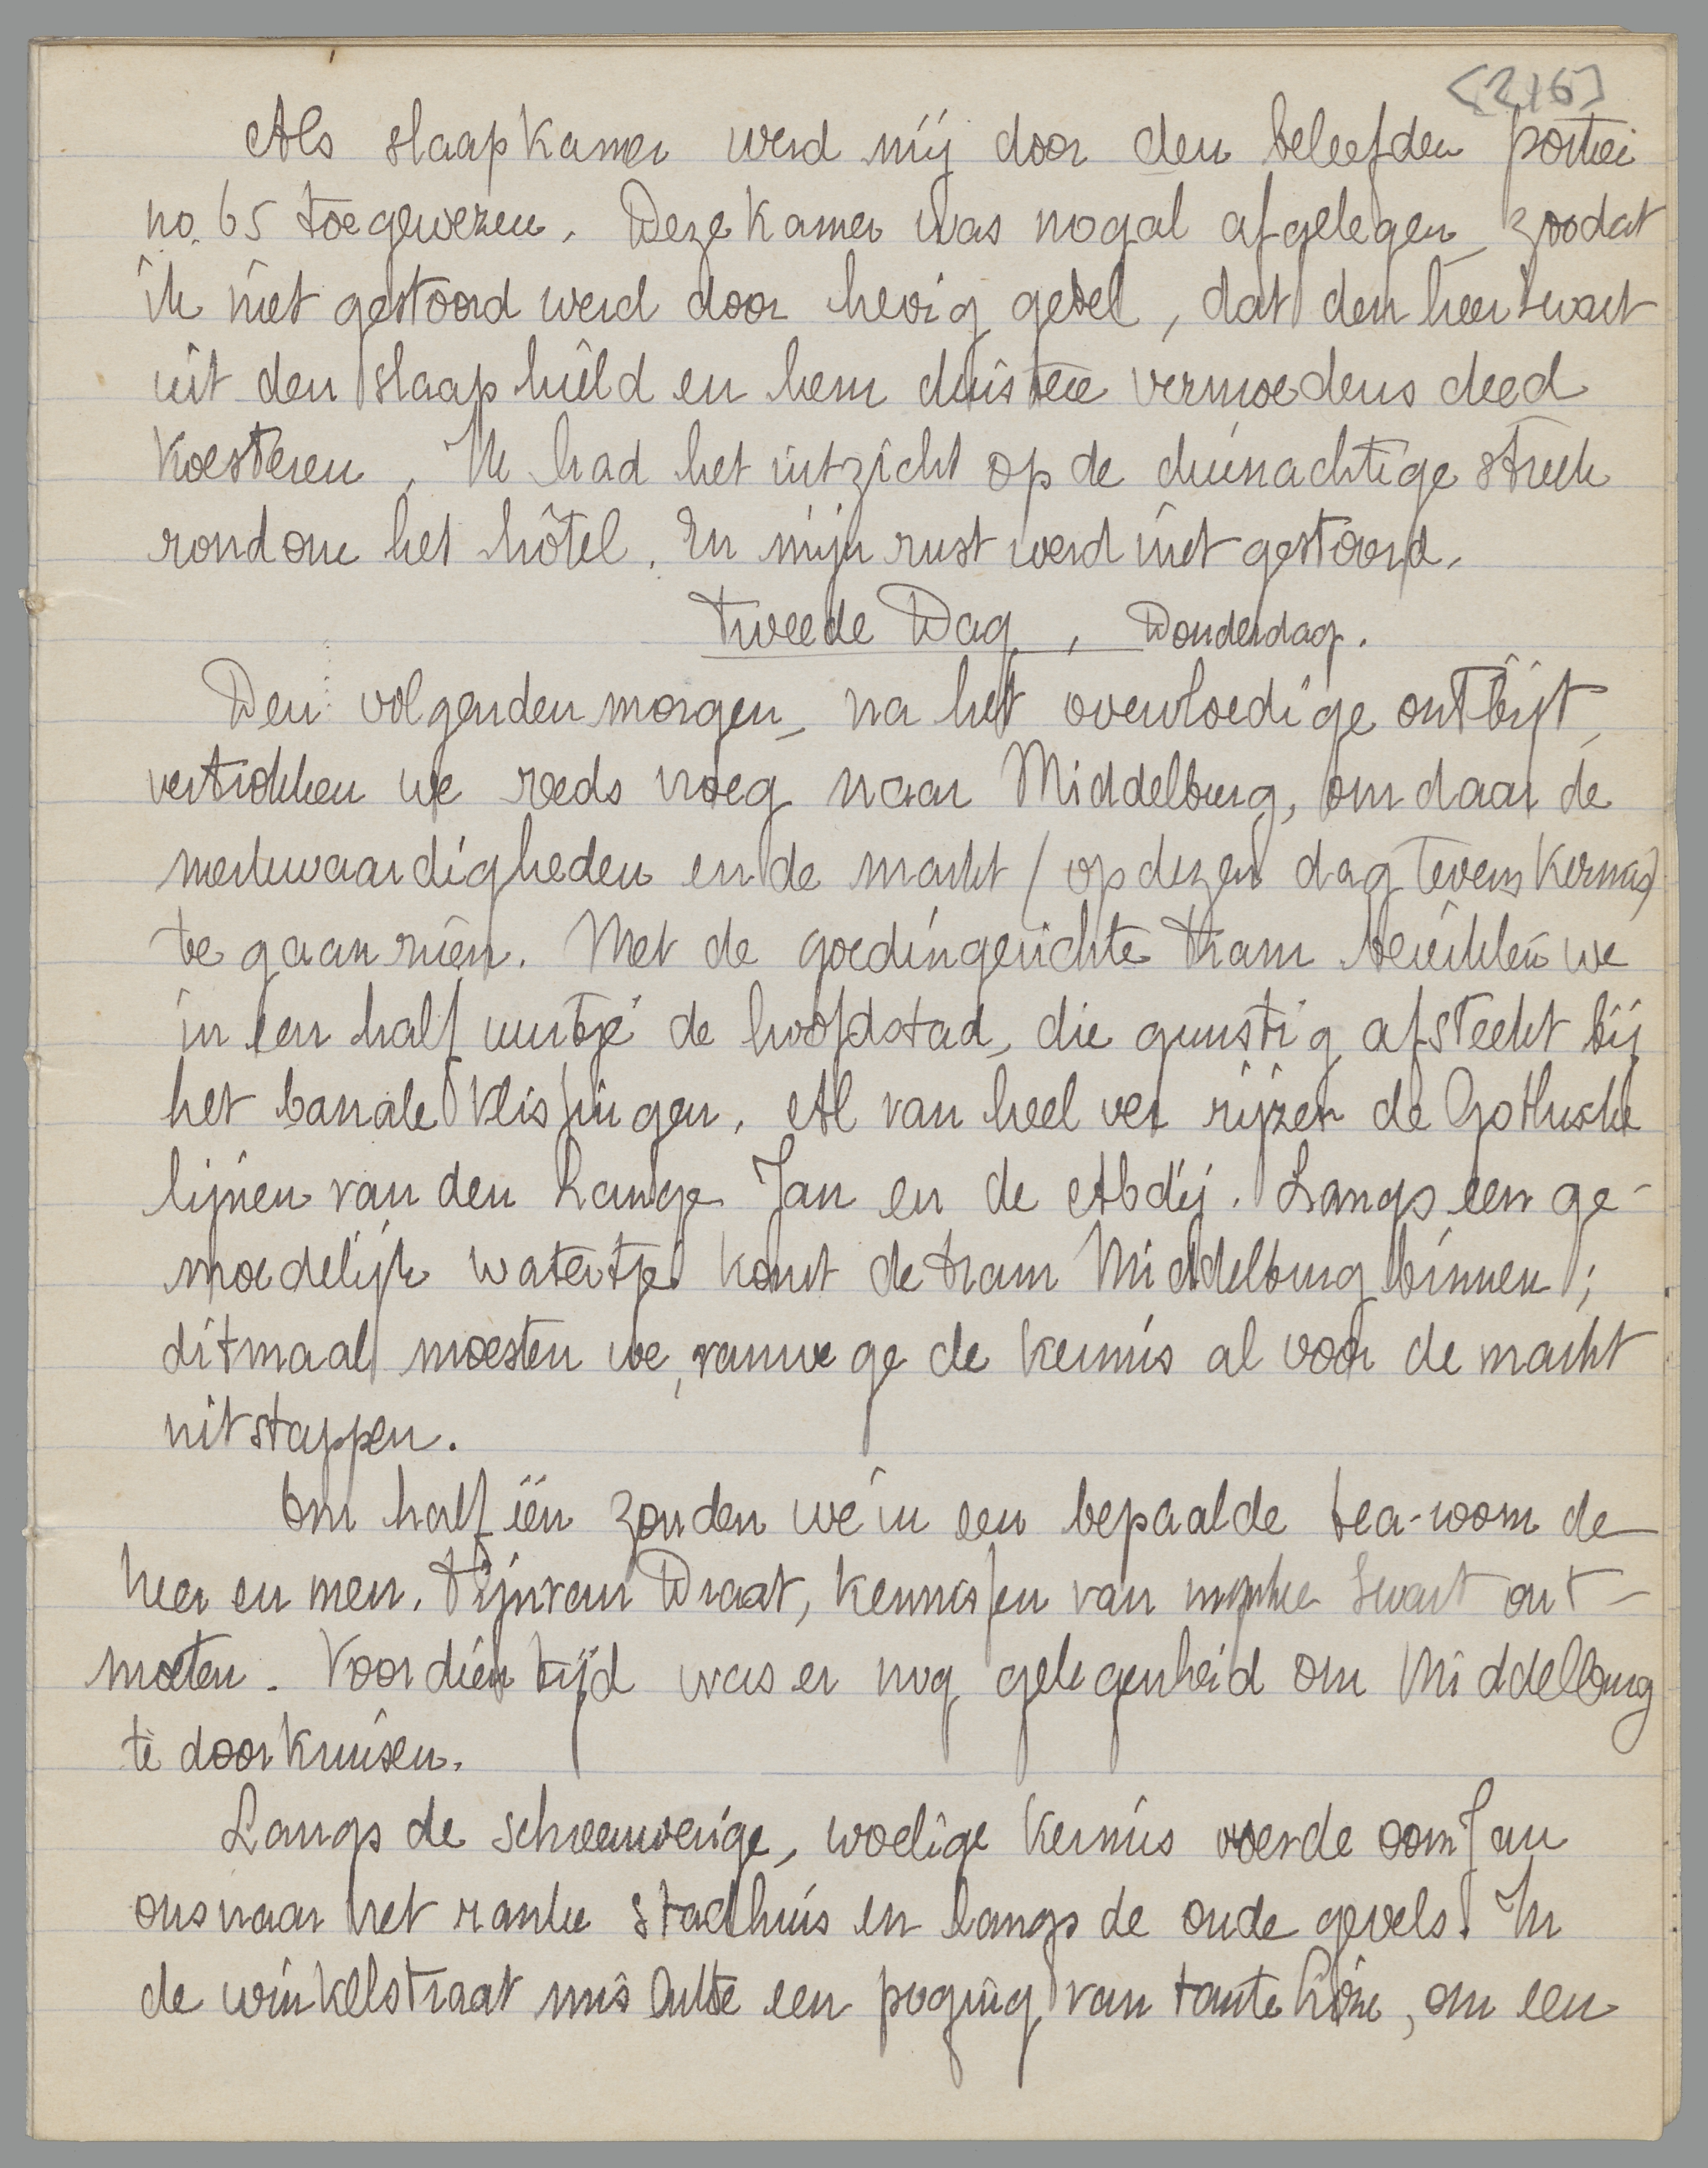 [216]
Als slaapkamer werd mij door den beleefden portier
no. 65 toegewezen. Deze kamer was nogal afgelegen, zoodat
ik niet gestoord werd door hevig gebel, dat den heer Swart
uit den slaap hield en hem duistere vermoedens deed
koesteren. Ik had het uitzicht op de duinachtige streek
rondom het hôtel. En mijn rust werd niet gestoord.
Tweede Dag, Donderdag.
Den volgenden morgen, na het overvloedige ontbijt,
vertrokken we reeds vroeg naar Middelburg, om daar de
merkwaardigheden en de markt (op dezen dag tevens kermis)
te gaan zien. Met de goedingerichte tram bereikten we
in een half uurtje de hoofdstad, die gunstig afsteekt bij
het banale Vlissingen. Al van heel ver rijzen de Gothische
lijnen van den Lange Jan en de Abdij. Langs een ge-
moedelijk watertje komt de tram Middelburg binnen;
ditmaal moesten we, vanwege de kermis al voor de markt
uitstappen.
Om half één zouden we in een bepaalde tea-room de
heer en mevr. Tijn van Draat, kennissen van Swart ont-
moeten. Voor dien tijd was er nog gelegenheid om Middelburg
te doorkruisen.
Langs de schreeuwerige, woelige kermis voerde oom Jan
ons naar het ranke stadhuis en langs de oude gevels. In
de winkelstraat mislukte een poging van tante, om een